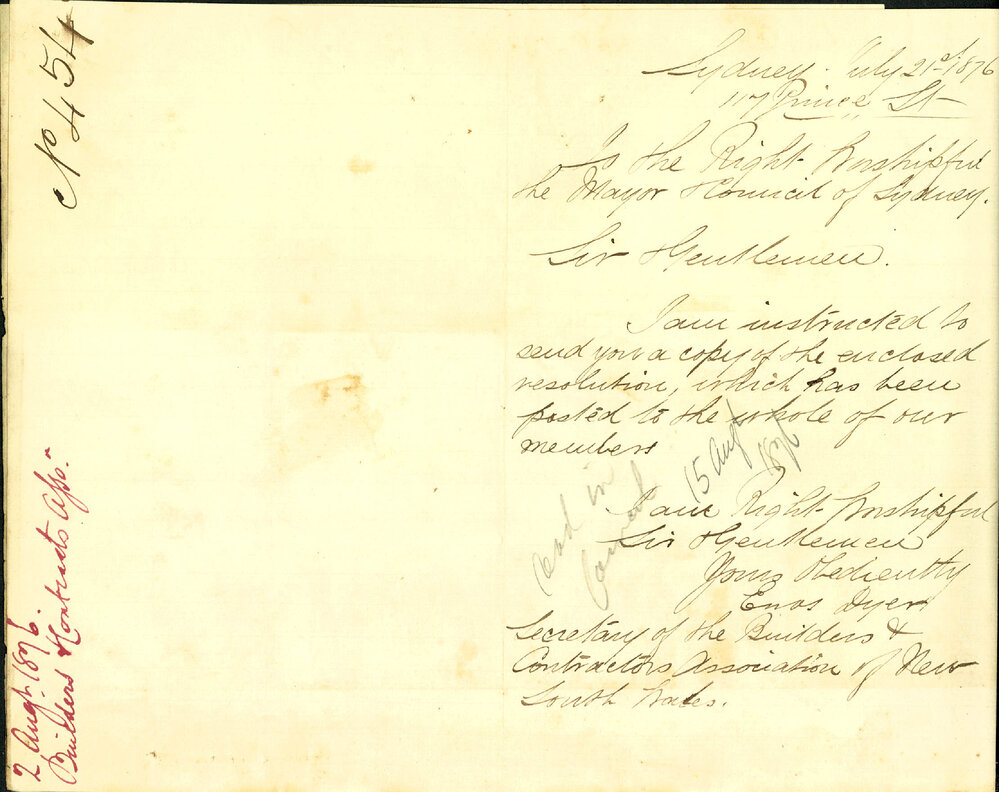 No 454
Sydney. July 21st 1876
117 Prince St
To the Right Worshipful
the Mayor & Council of Sydney.
Sir & Gentlemen.
I am instructed to
send you a copy of the enclosed
resolution, which has been
posted to the whole of our
members
Read in
Council
15 Augt
1876
I am Right Worshipful
Sir & Gentlemen
Yours Obediently
Enos Dyer
Secretary of the Builders &
Contractors Association of New
South Wales.
2 Augt 1876.
Builders & Contracts Asso.n